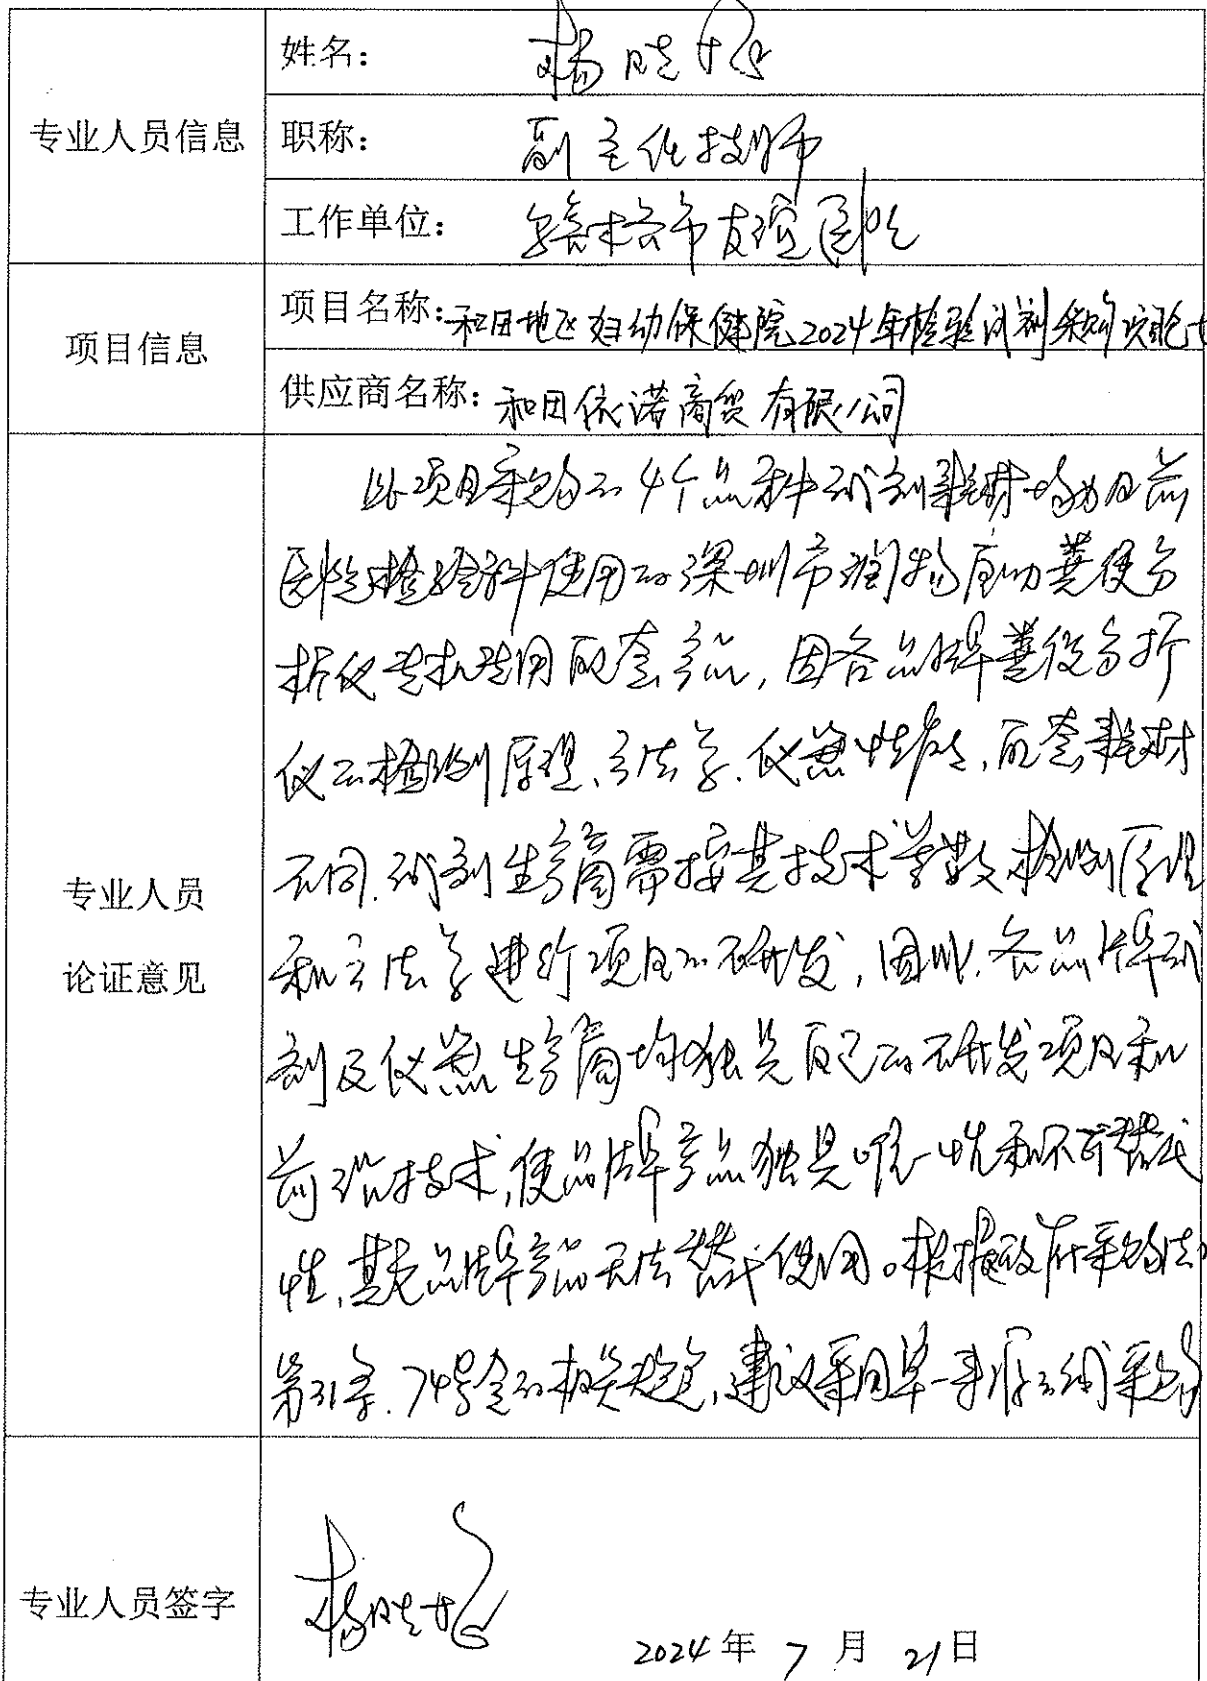 专业人员信息
姓名: 杨晓
职称: 副主任技师
工作单位: 乌鲁木齐市友谊医院
项目信息
项目名称: 和田地区妇幼保健院2024年检验试剂采购
供应商名称: 和田依诺商贸有限公司
专业人员
论证意见
此项目采购的4个品种试剂耗材均为目前
医院检验科使用的深圳市 粪便分
析仪 专用配套产品,因各品牌粪便分析
仪的检测原理、方法学、仪器性能、配套耗材
不同.试剂生产商需按其技术参数、检测原理
和方法学进行项目的研发,因此.各品牌试
剂及仪器生产商均独具自己的研发项目和
前沿技术,使品牌产品独具唯一性和不可替代
性,其它品牌产品无法替代使用。根据政府采购法
第31条.74号令的相关规定,建议采用单一来源方式采购
专业人员签字
杨晓
2024年 7 月 21日